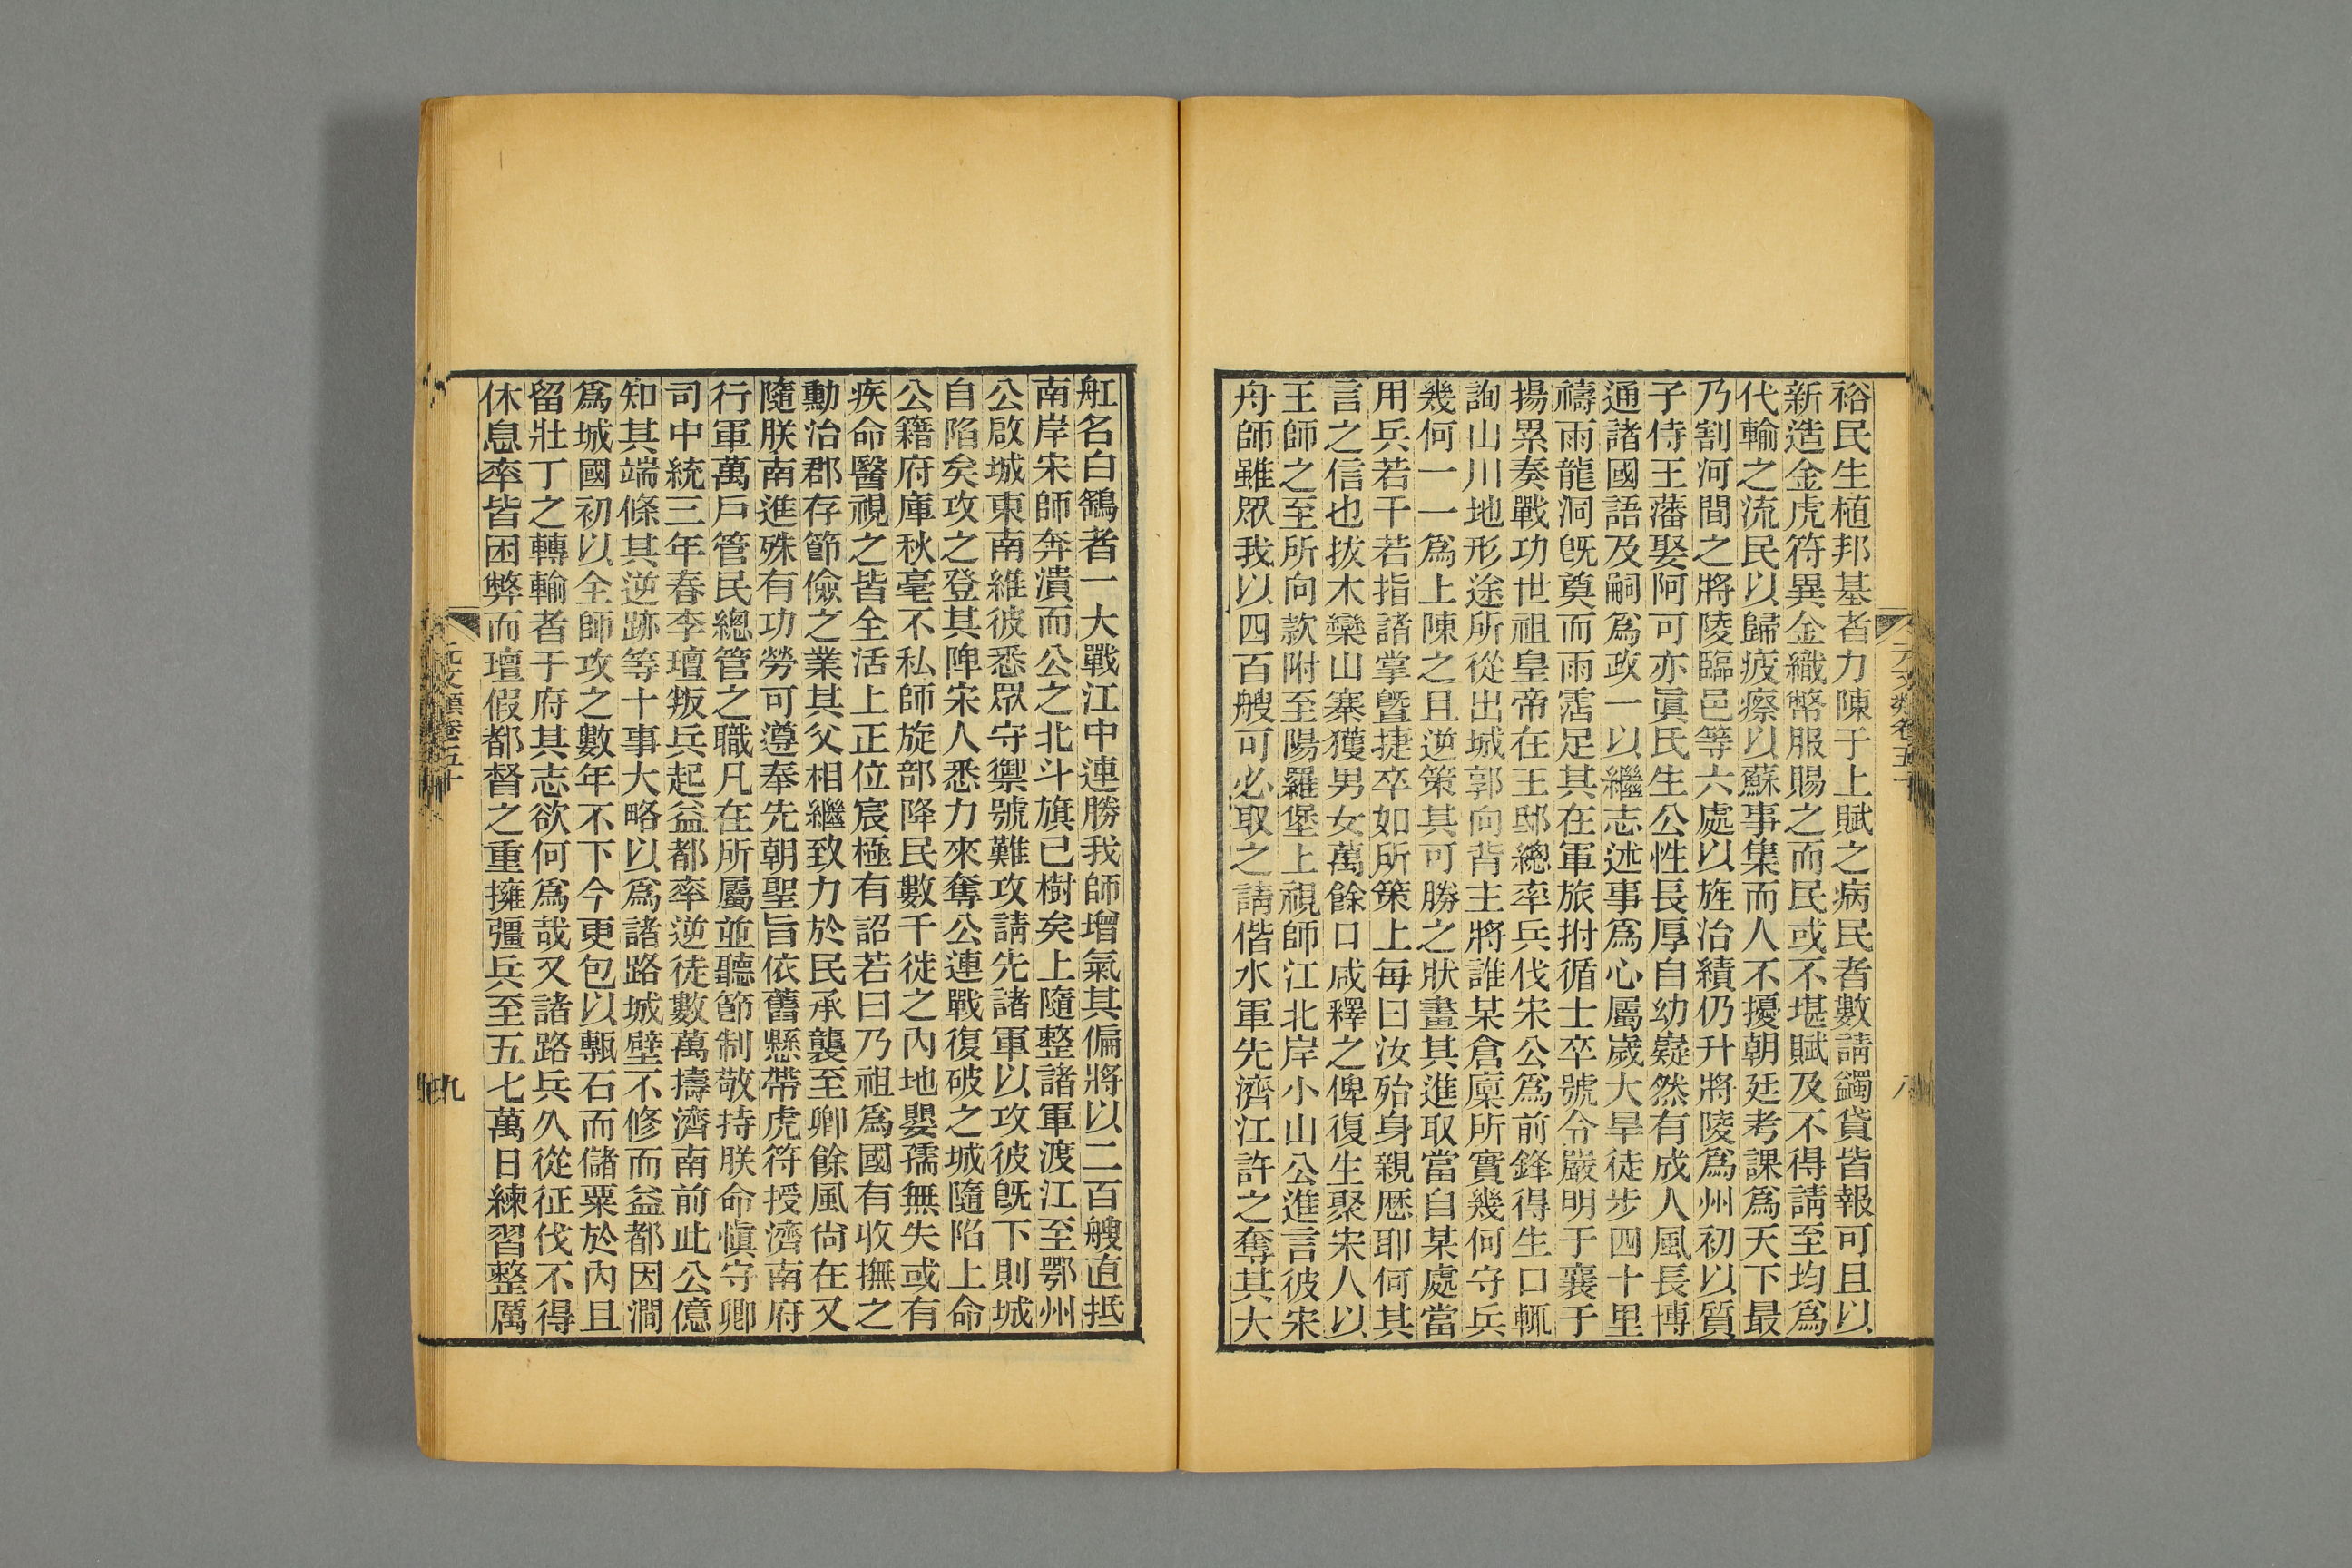 裕民生植邦基者力陳于上賦之病民者數請蠲貸皆報可且以
新造金虎符異金織幣服賜之而民或不堪賦及不得請至均爲
代輸之流民以歸疲瘵以蘇事集而人不擾朝廷考課爲天下最
乃割河間之將陵臨邑等六處以旌治績仍升將陵爲州初以質
子侍王藩娶阿可亦眞氏生公性長厚自幼嶷然有成人風長博
通諸國語及嗣爲政一以繼志述事爲心屬歲大旱徒步四十里
禱雨龍洞旣奠而雨霑足其在軍旅拊循士卒號令嚴明于襄于
揚累奏戰功世祖皇帝在王邸總率兵伐宋公爲前鋒得生口輒
詢山川地形途所從出城郭向背主將誰某倉廩所實幾何守兵
幾何一一爲上陳之且逆策其可勝之狀畫其進取當自某處當
用兵若干若指諸掌曁捷卒如所策上每曰汝殆身親歷耶何其
言之信也拔木欒山寨獲男女萬餘口咸釋之俾復生聚宋人以
王師之至所向款附至陽羅堡上視師江北岸小山公進言彼宋
舟師雖眾我以四百艘可必取之請偕水軍先濟江許之奪其大
舡名白鷂者一大戰江中連勝我師增氣其偏將以二百艘直抵
南岸宋師奔潰而公之北斗旗已樹矣上隨整諸軍渡江至鄂州
公啟城東南維彼悉眾守禦號難攻請先諸軍以攻彼旣下則城
自陷矣攻之登其陴宋人悉力來奪公連戰復破之城隨陷上命
公籍府庫秋毫不私師旋部降民數千徙之內地嬰孺無失或有
疾命醫視之皆全活上正位宸極有詔若曰乃祖爲國有收撫之
勳治郡存節儉之業其父相繼致力於民承襲至卿餘風尙在又
隨朕南進殊有功勞可遵奉先朝聖旨依舊懸帶虎符授濟南府
行軍萬戶管民總管之職凡在所屬並聽節制敬持朕命愼守卿
司中統三年春李璮叛兵起益都率逆徒數萬擣濟南前此公億
知其端條其逆跡等十事大略以爲諸路城壁不修而益都因澗
爲城國初以全師攻之數年不下今更包以甎石而儲粟於內且
留壯丁之轉輸者于府其志欲何爲哉又諸路兵久從征伐不得
休息率皆困弊而璮假都督之重擁彊兵至五七萬日練習整厲
元文類卷五十
八
元文類卷五十
九